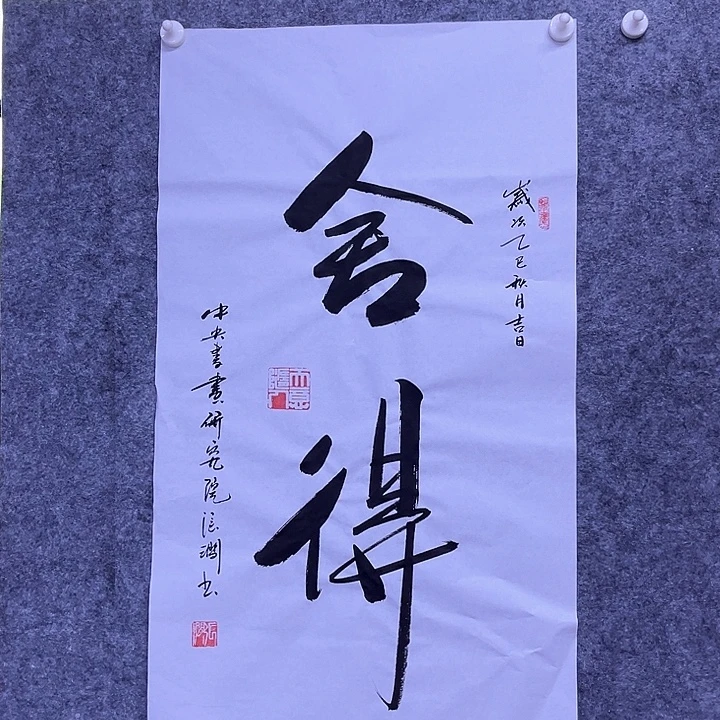 岁次乙巳秋月吉日
舍得
中央书画研究院张润书